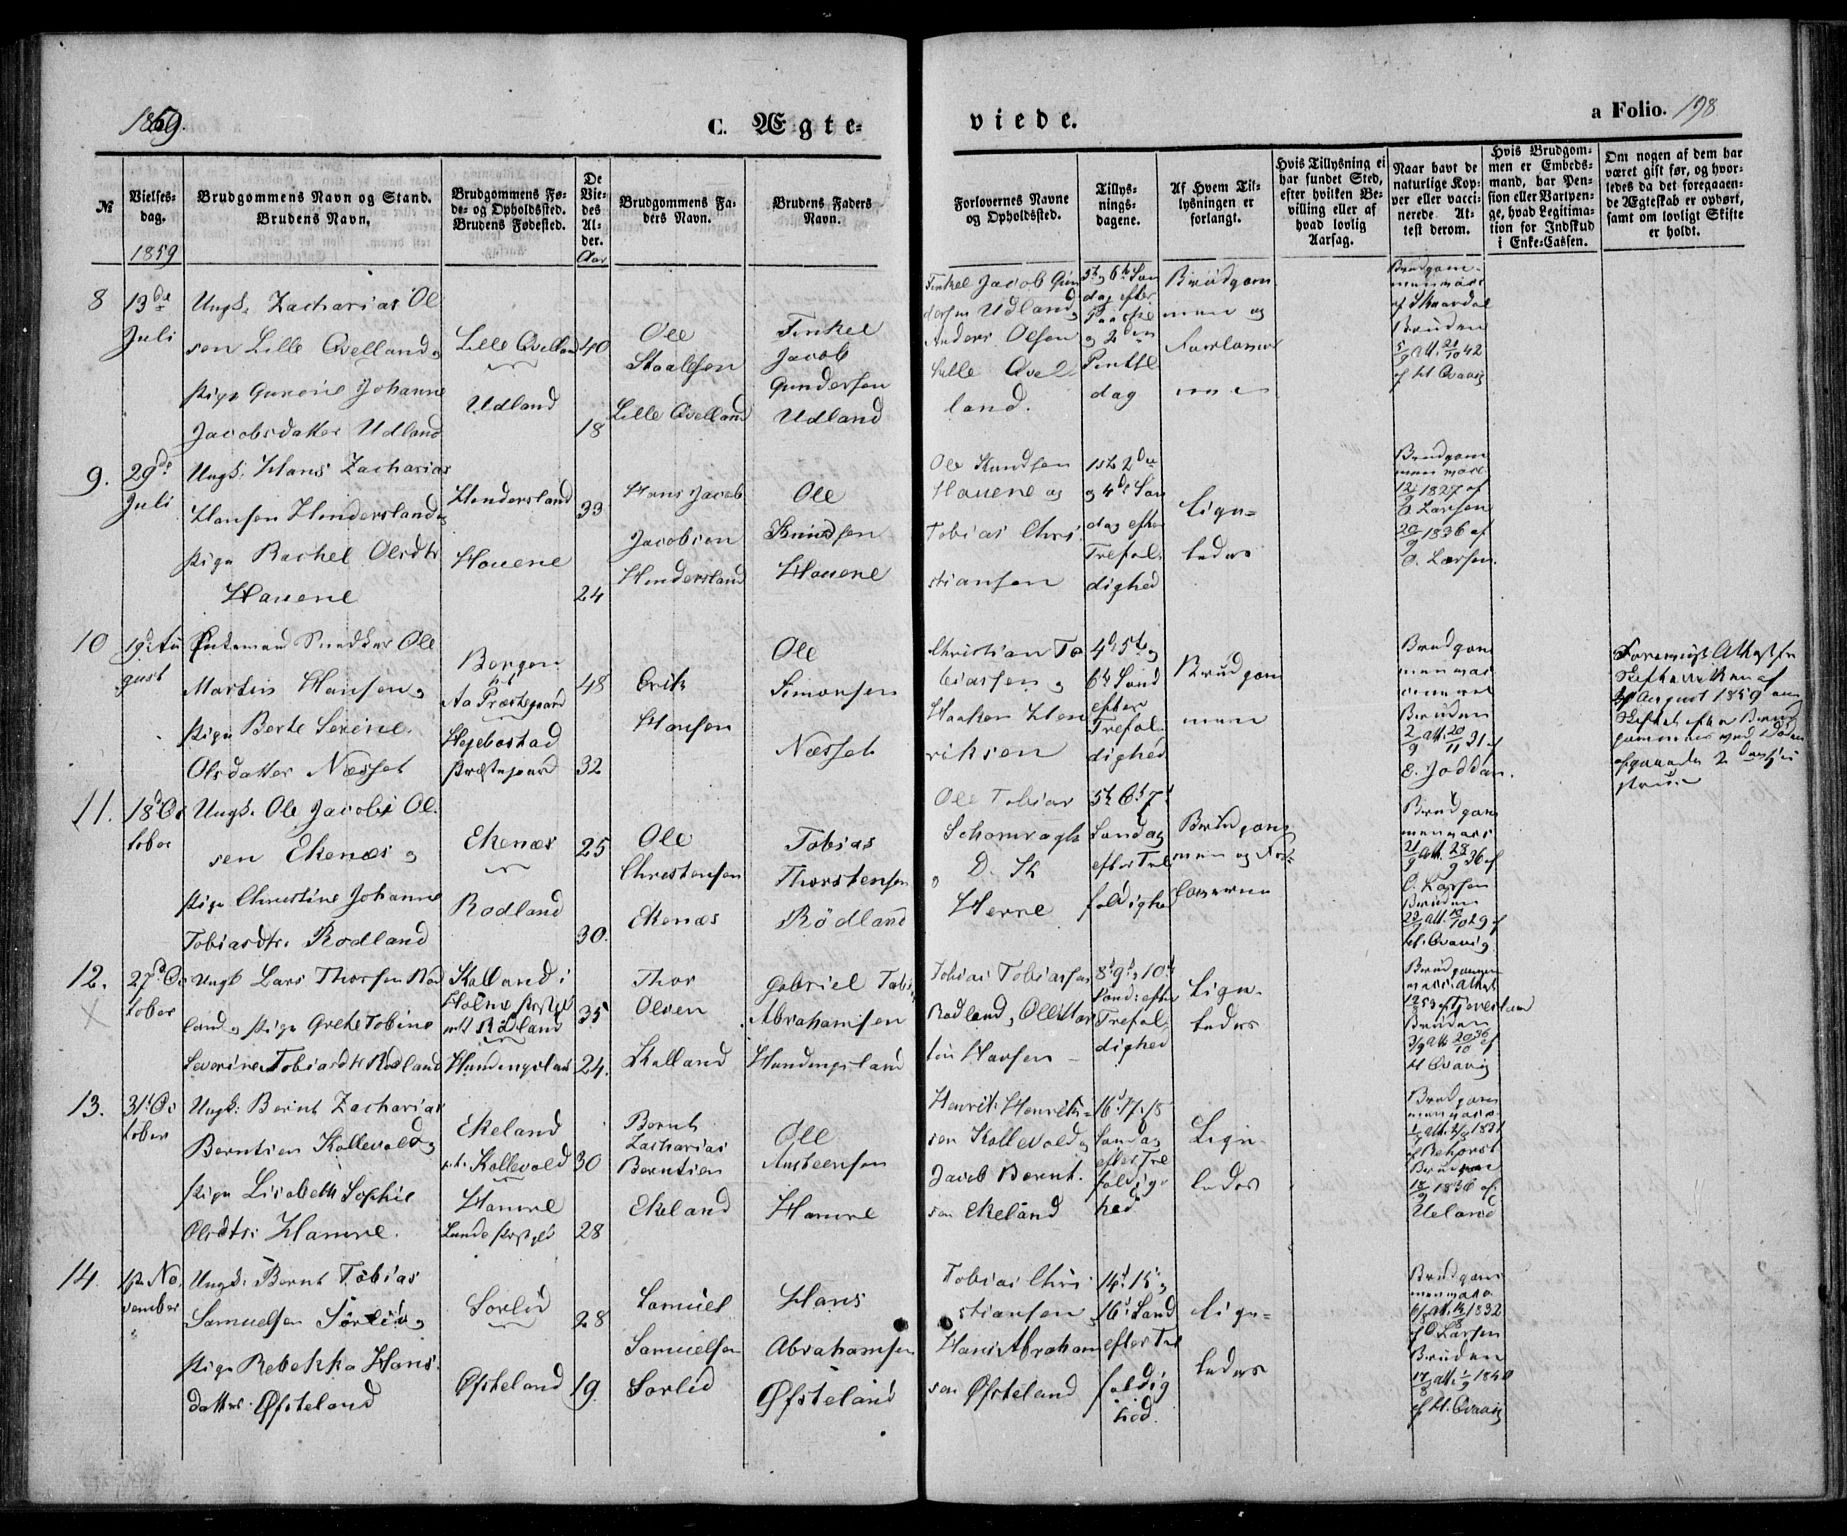 1859.
C. Ægte-
viede.
a Folio. 198
№
Vielses-
dag.
1859
Brudgommens Navn og Stand.
Brudens Navn.
Brudgommens Fø-
de- og Opholdssted.
Brudens Fødested.
De
Vie-
des
Al-
der.
Aar
Brudgommens Fa-
ders Navn.
Brudens Faders
Navn.
Forlovernes Navne
og Opholdssted.
Tillys-
nings-
dagene.
Af Hvem Til-
lysningen er
forlangt.
Hvis Tillysning ei
har fundet Sted,
efter hvilken Be-
villing eller af
hvad lovlig
Aarsag.
Naar havt de
naturlige Kop-
per eller vacci-
nerede At-
test derom.
Hvis Brudgom-
men er Embeds-
mand, har Pen-
sion eller Vartpen-
ge, hvad Legitima-
tion for Indskud
i Enke-Cassen.
Om nogen af dem har
været gift før, og hvor-
ledes da det foregaaen-
de Ægteskab er ophørt,
samt om lovligt Skifte
er holdt.
8
13de
Juli
Ungk. Zacharias Ol
sen Lille Qvelland og
Pige Gurine Johanne
Jacobsdatter Udland
Lille Qvelland
Udland
40
18
Ole
Staalesen
Lille Qvelland
Tinkel
Jacob
Gundersen
Udland
Tinkel Jacob Gun
dersen Udland og
Anders Olsen
Lille Qvel
land.
5te og 6te Søn
dag efter
Paaske
og 2den
Pintse
dag
Brudgom
men og
Forlover
ne
Brudgom
men vacc
Bruden
5/9 Att. 21/10 42
af H. Qvavig
9.
29de
Juli
Ungk. Hans Zacharias
Hansen Hindersland og
Pige Rachel Olsdtr
Houene
Hindersland
Houene
33
24
Hans Jacob
Jacobsen
Hindersland
Ole
Knudsen
Houene
Ole Knudsen
Houene og
Tobias Chri
stiansen
1ste 2den
og 4de Søn
dag efter
Trefol
dighed
Lige-
ledes
Brudgom
men vacc
12/9 1827 af
O. Larsen
20/9 1836 af
O. Larsen.
10
19de Au
gust
Enkemand Snedker Ole
Martin Hansen og
Pige Berte Serine
Olsdatter Næsset
Bergen
Aa Præstegaard
Hegebostad
Præstegaard
48
32
Erik
Hansen
Ole
Simonsen
Næsset
Christian To
biassen og
Haaken Hen
riksen
4de 5te og
6te Sønd
efter
Trefol
dighed
Brudgom
men
Brudgom
men vac
Bruden
2/9 Att. 20/11 31 af
E. Joddan.
Forevist Attest fra
Skifteretten af
August 1859 om
Skiftet efter Brud
gommens ved Døden
afgangne 2den Hu
strue
11.
18de Oc
tober
Ungk. Ole Jacob Ol
sen Ekenæs og
Pige Christine Johanne
Tobiasdtr. Rødland
Ekenæs
Rødland
25
30.
Ole
Christensen
Ekenæs
Tobias
Thorstensen
Rødland
Ole Tobias
Schomragh
D. Th
Herre
5te 6te 7de
Søndag
efter Tre
foldighed
Brudgom
men og For
loverne
Brudgom
men vacc
21/9 Att. 28/9 36 af
O. Larsen
Bruden
Att. 29 af
H. Qvavig
12.
X
27de Oc
tober
Ungk Lars Thorsen Rød
land og Pige Grethe Tobine
Severine Tobiasdtr Rødland
Skalland i
Holme Prstgd
Rødland
Hundingsland
35
24.
Thor
Olsen
Skalland
Gabriel Tobias
Abrahamsen
Hundingsland
Tobias Tobiassen
Rødland og Ole Mar
tin Hansen
8de 9de og 10de
Sønd. efter
Trefol
dighed
Lige-
ledes
Brudgommen
vacc. Attest
53 af Tjoversland
Bruden
3/9 Att 20/10 36 af
H Qvavig
13.
31te Oc
tober
Ungk. Bernt Zacharias
Berntsen Kollevold og
Pige Lisabeth Sophie
Olsdtr. Hamre.
Ekeland
Kollevold
Hamre
Lunde Prstgjd
30
28
Bernt
Zacharias
Berntsen
Ekeland
Ole
Austeensen
Hamre
Henrik Henrik-
sen Kollevold og
Jacob Bernt
sen Ekeland
16de 17. 18
Søndag
efter Tre
foldig-
hed
Lige-
ledes
Brudgom
men vacc.
Att. 1831
af Rehorst
Bruden
18/9 1836 af
Ueland
14.
1ste No
vember
Ungk. Bernt Tobias
Samuelsen Sørlid og
Pige Rebekka Hans
datter Øfsteland
Sørlid
Øfsteland
28
19
Samuel
Samuelsen
Sørlid
Hans
Abrahamsen
Øfsteland
Tobias Chri
stiansen
Hans Abraham
sen Øfsteland
14de 15de og
16de Sønd
efter Tre
foldig
hed.
Lige-
ledes
Brudgom
men vacc
Att. 1832
af O. Larsen
Bruden
17/8 Att. 1/9 1840
af H. Qvavig